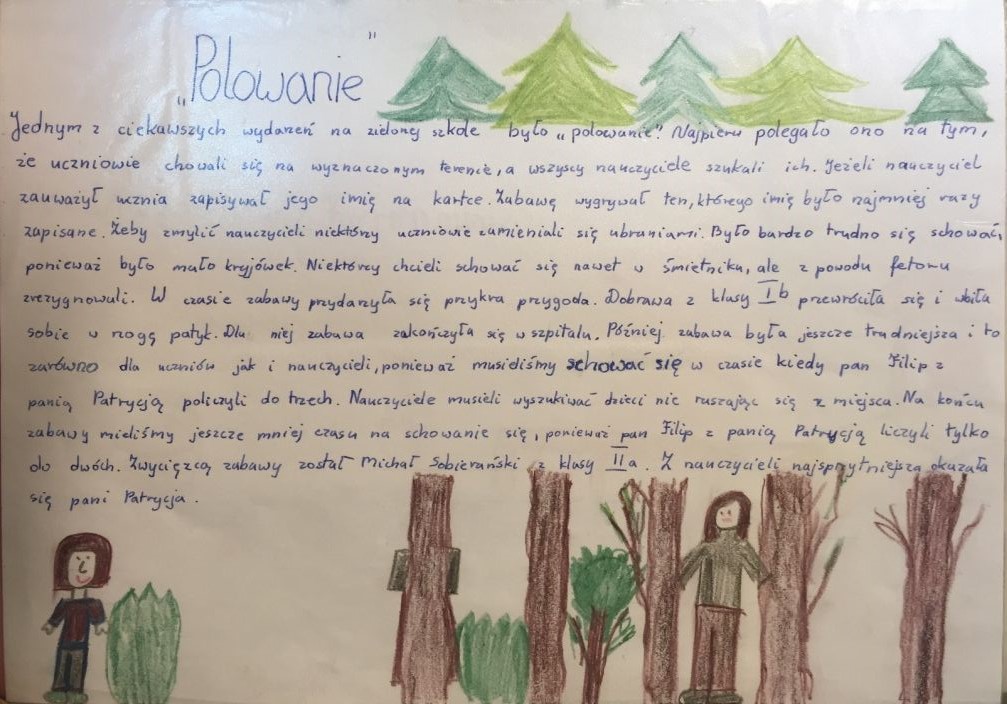 „Polowanie”
Jednym z ciekawszych wydarzeń na zielonej szkole było „polowanie”. Najpierw polegało ono na tym,
że uczniowie chowali się na wyznaczonym terenie, a wszyscy nauczyciele szukali ich. Jeżeli nauczyciel
zauważył ucznia zapisywał jego imię na kartce. Zabawę wygrywał ten, którego imię było najmniej razy
zapisane. Żeby zmylić nauczycieli niektórzy uczniowie zamieniali się ubraniami. Było bardzo trudno się schować,
ponieważ było mało kryjówek. Niektórzy chcieli schować się nawet w śmietniku, ale z powodu fetoru
zrezygnowali. W czasie zabawy przydarzyła się przykra przygoda. Dobrawa z klasy I b przewróciła się i wbiła
sobie w nogę patyk. Dla niej zabawa zakończyła się w szpitalu. Później zabawa była jeszcze trudniejsza i to
zarówno dla uczniów jak i nauczycieli, ponieważ musieliśmy schować się w czasie kiedy pan Filip z
panią Patrycją policzyli do trzech. Nauczyciele musieli wyszukiwać dzieci nie ruszając się z miejsca. Na końcu
zabawy mieliśmy jeszcze mniej czasu na schowanie się, ponieważ pan Filip z panią Patrycją liczyli tylko
do dwóch. Zwycięzcą zabawy został Michał Sobierański z klasy II a. Z nauczycieli najsprytniejsza okazała
się pani Patrycja.